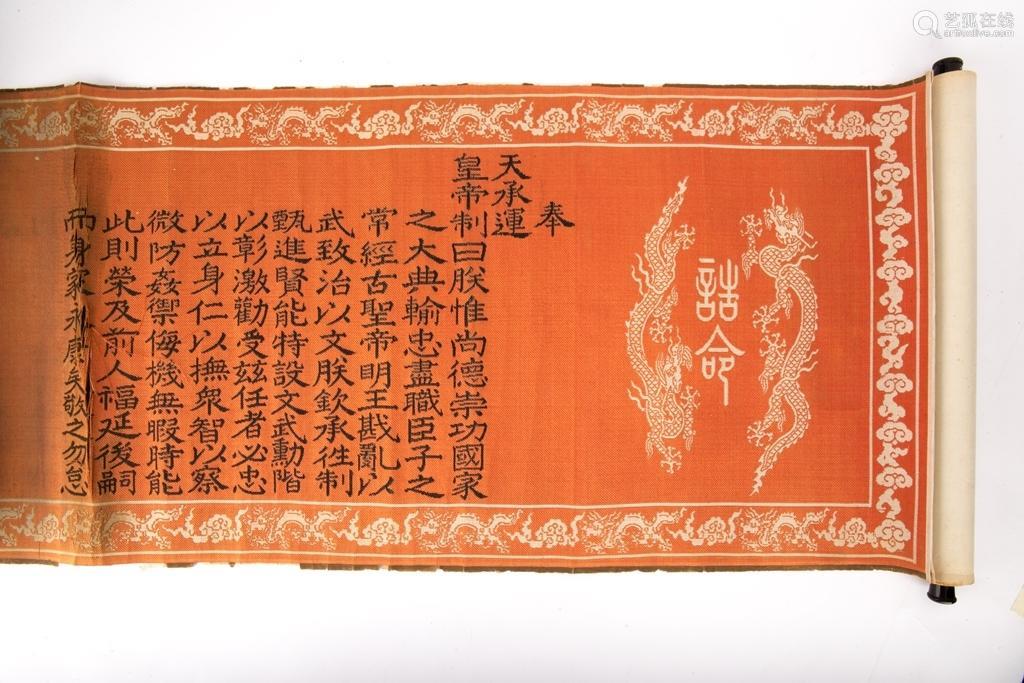 誥命
奉
天承運
皇帝制曰朕惟尚德崇功國家
之大典輸忠盡職臣子之
常經古聖帝明王戡亂以
武致治以文朕欽承徃制
甄進賢能特設文武勳階
以彰激勸受茲任者必忠
以立身仁以撫衆智以察
微防姦禦侮機無暇時能
此則榮及前人福延後嗣
而身家永康矣敬之勿怠
艺狐在线
artfoxlive.com